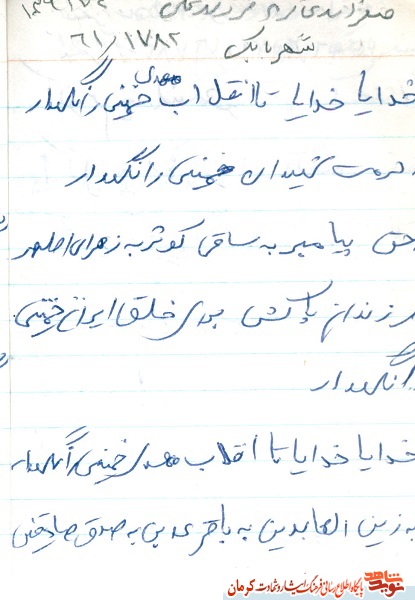 ۶۱/۱۷۸۲
شهر بابک
خدایا خدایا تا انقلاب مهدی خمینی را نگهدار
حرمت شهیدان خمینی را نگهدار
حق پیامبر به ساقی کوثر به زهرای اطهر
فرزندان پاکش برای خلق ایران خمینی
را نگهدار
خدایا خدایا تا انقلاب مهدی خمینی را نگهدار
به زین العابدین به باقر علم دین به صدق صادقش
نوید شاهد
پایگاه اطلاع رسانی فرهنگ ایثار و شهادت کرمان